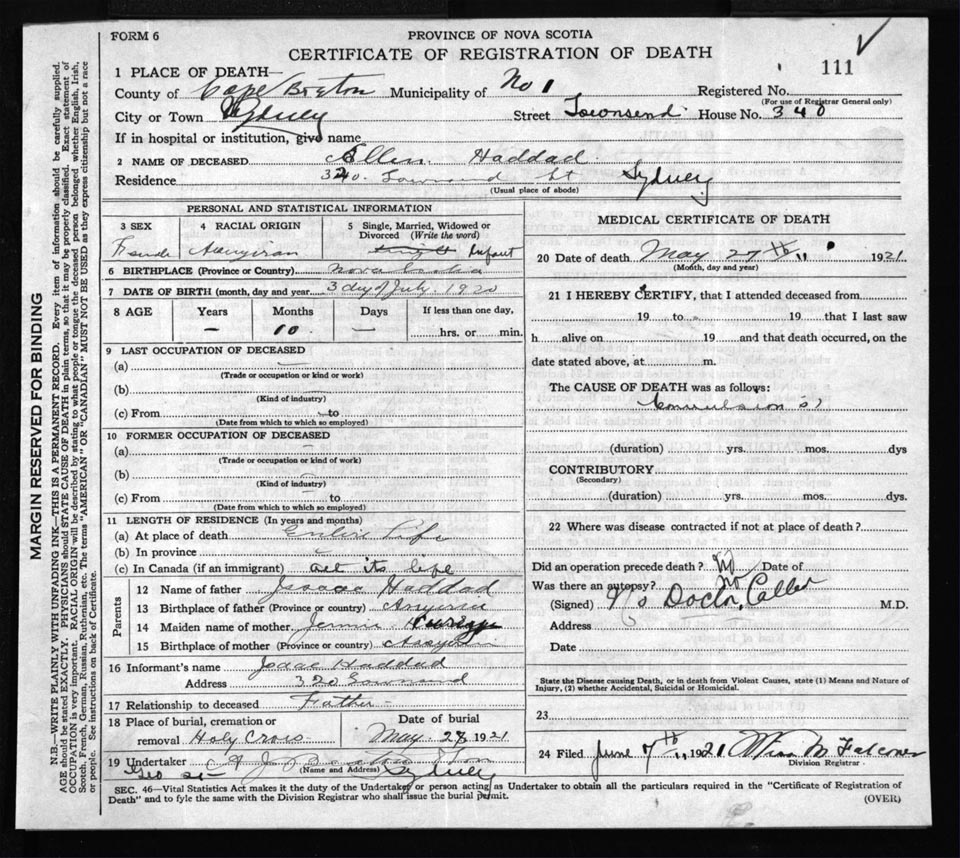 FORM 6
PROVINCE OF NOVA SCOTIA
CERTIFICATE OF REGISTRATION OF DEATH
111
1 PLACE OF DEATH—
County of Cape Breton Municipality of No 1 Registered No.
(For use of Registrar General only)
City or Town Sydney Street Townsend House No. 340
If in hospital or institution, give name
2 NAME OF DECEASED Ellen Haddad
Residence 340 Townsend St Sydney
(Usual place of abode)
PERSONAL AND STATISTICAL INFORMATION
3 SEX
4 RACIAL ORIGIN
5 Single, Married, Widowed or Divorced (Write the word)
Female Assyrian Infant
6 BIRTHPLACE (Province or Country) Nova Scotia
7 DATE OF BIRTH (month, day and year) 3 day of July 1920
8 AGE Years Months Days If less than one day,
— 10 — hrs. or min.
9 LAST OCCUPATION OF DECEASED
(a)
(Trade or occupation or kind or work)
(b)
(Kind of industry)
(c) From to
(Date from which to which so employed)
10 FORMER OCCUPATION OF DECEASED
(a)
(Trade or occupation or kind of work)
(b)
(Kind of industry)
(c) From to
(Date from which to which so employed)
11 LENGTH OF RESIDENCE (In years and months)
(a) At place of death Entire Life
(b) In province
(c) In Canada (if an immigrant) all its life
Parents
12 Name of father Isaac Haddad
13 Birthplace of father (Province or country) Assyria
14 Maiden name of mother Jennie
15 Birthplace of mother (Province or country)
16 Informant's name Isaac Haddad
Address 320 Townsend
17 Relationship to deceased Father
18 Place of burial, cremation or removal Holy Cross
Date of burial May 28 1921
19 Undertaker A J Beaton & Son
(Name and Address)
Geo St Sydney
MEDICAL CERTIFICATE OF DEATH
20 Date of death May 27th 1921
(Month, day and year)
21 I HEREBY CERTIFY, that I attended deceased from
19 to 19 that I last saw
h alive on 19 and that death occurred, on the
date stated above, at m.
The CAUSE OF DEATH was as follows:
Convulsions
(duration) yrs. mos. dys
CONTRIBUTORY
(Secondary)
(duration) yrs. mos. dys.
22 Where was disease contracted if not at place of death?
Did an operation precede death? No Date of
Was there an autopsy? no
(Signed) No Doctor Called M.D.
Address
Date
State the Disease causing Death, or in death from Violent Causes, state (1) Means and Nature of
Injury, (2) whether Accidental, Suicidal or Homicidal.
23
24 Filed June 7th 1921 M Falconer
Division Registrar
SEC. 46—Vital Statistics Act makes it the duty of the Undertaker or person acting as Undertaker to obtain all the particulars required in the "Certificate of Registration of
Death" and to fyle the same with the Division Registrar who shall issue the burial permit.
(OVER)
MARGIN RESERVED FOR BINDING
N.B.—WRITE PLAINLY WITH UNFADING INK—THIS IS A PERMANENT RECORD. Every item of information should be carefully supplied.
AGE should be stated EXACTLY. PHYSICIANS should STATE CAUSE OF DEATH in plain terms, so that it may be properly classified. Exact statement of
OCCUPATION is very important. RACIAL ORIGIN will be described by stating to what people or tongue the deceased person belonged whether English, Irish,
Scotch, French, German, Russian, Ruthenian, etc. The terms "AMERICAN" OR "CANADIAN" MUST NOT BE USED as they express citizenship but not a race
or people. See instructions on back of Certificate.